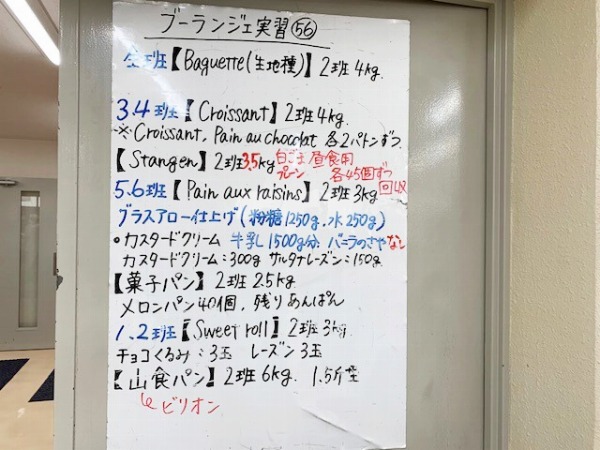 ブーランジェ実習㊺
全班【Baguette(生地種)】2班4kg
3.4班【Croissant】2班4kg
※Croissant, Pain au chocolat 各2パトンずつ
【Stangen】2班3.5kg 白ごま 昼食用
プレーン 各45個ずつ
5.6班【Pain aux raisins】2班3kg 回収
グラスアロー仕上げ(粉糖1250g.水250g)
•カスタードクリーム 牛乳1500g分 バニラのさやなし
カスタードクリーム:300g サルタナレーズン:150g
【菓子パン】2班2.5kg
メロンパン40個,残りあんぱん
1.2班【Sweet roll】2班3kg
チョコくるみ:3玉 レーズン3玉
【山食パン】2班6kg 1.5斤型
↳ビリオン